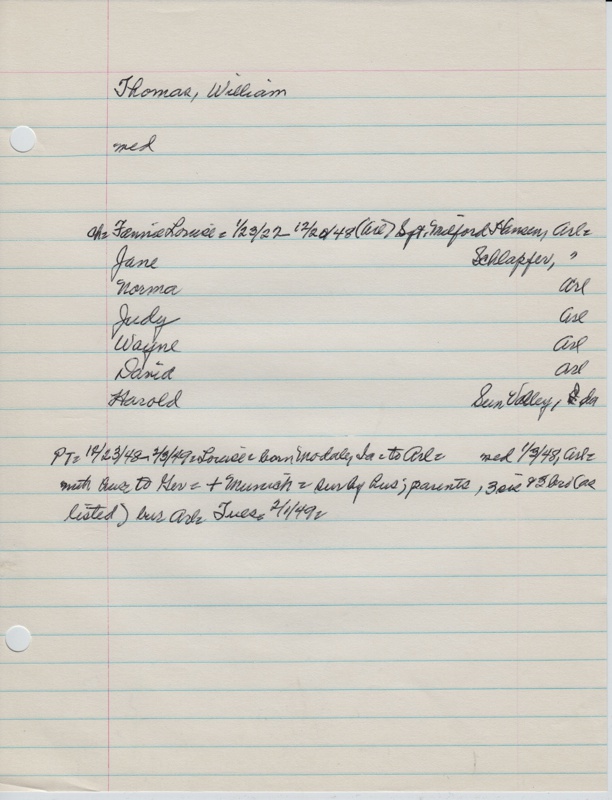 Thomas, William
med
ch= Fannie Louise = 1/23/22 - 12/20/48 (Arl) Sgt. Milford Hansen, Arl=
Jane Schlapfer, "
Norma Arl
Judy Arl
Wayne Arl
David Arl
Harold Sun Valley, Ida
PT= 12/23/48 - 2/3/49 = Louise = born Modale, Ia = to Arl = med 1/3/48, Arl=
with hus = to Ger = + Munich = sur by hus; parents, 3 sis & 3 bro (as
listed) bur Arl= Tues= 2/1/49=